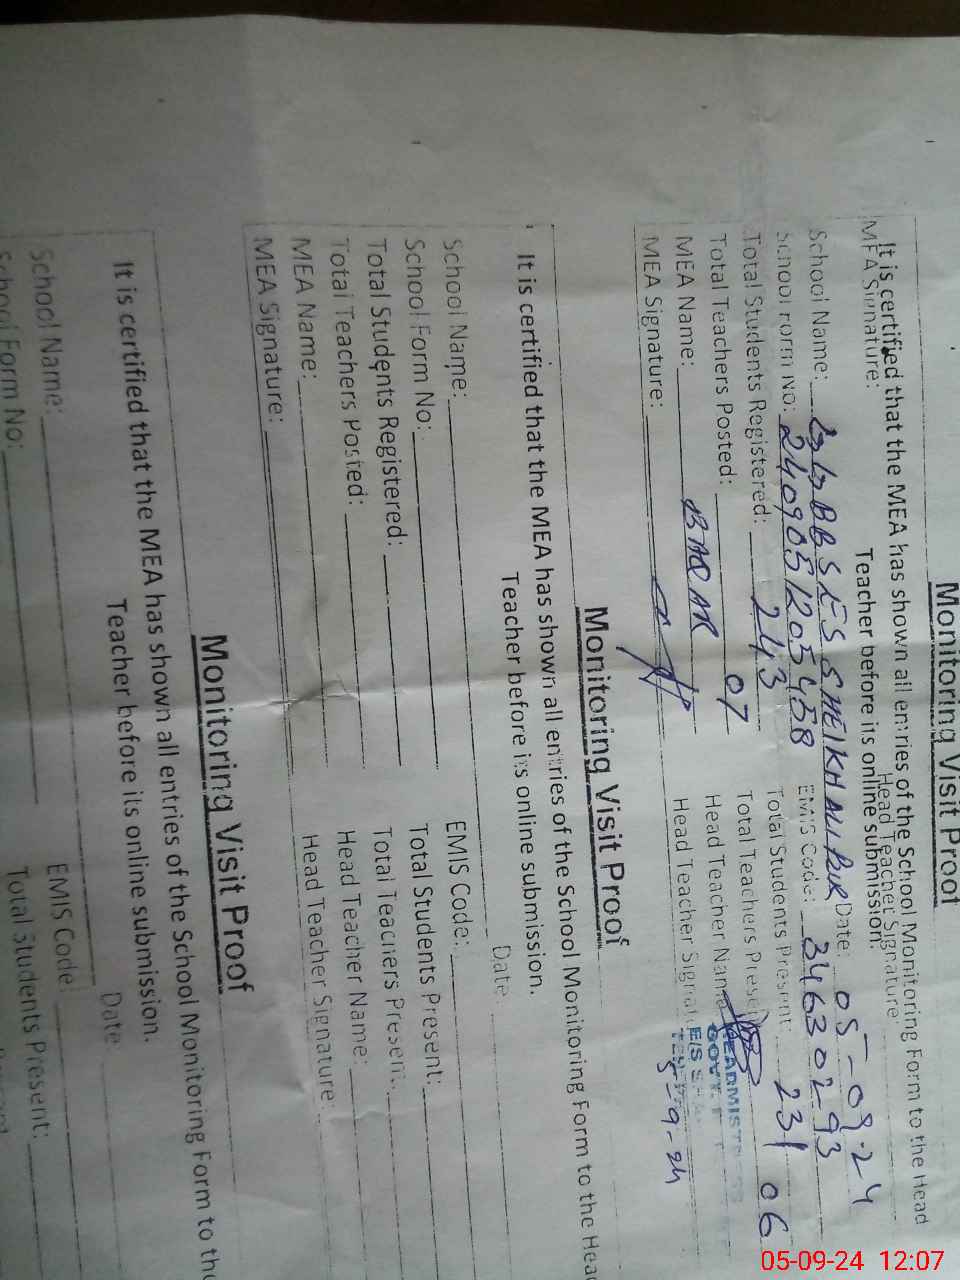 Monitoring Visit Proof
It is certified that the MEA has shown all entries of the School Monitoring Form to the Head
MEA Signature: Head Teacher Signature:
Teacher before its online submission.
School Name: GGBBSES SHEIKH ALI PUR Date: 05-09-24
School Form No: 2409051205458 EMIS Code: 34630293
Total Students Registered: 243 Total Students Present: 231
Total Teachers Posted: 07 Total Teachers Present 06
MEA Name: BAQAR Head Teacher Name
MEA Signature: Head Teacher
HEADMIST
GOVT.
E/S S
5-9-24
Monitoring Visit Proof
It is certified that the MEA has shown all entries of the School Monitoring Form to the Head
Teacher before its online submission.
School Name: Date
School Form No: EMIS Code:
Total Students Registered: Total Students Present:
Total Teachers Posted: Total Teachers Present:
MEA Name: Head Teacher Name:
MEA Signature: Head Teacher Signature:
Monitoring Visit Proof
It is certified that the MEA has shown all entries of the School Monitoring Form to the
Teacher before its online submission.
School Name: Date
School Form No: EMIS Code:
Total Students Present:
05-09-24 12:07